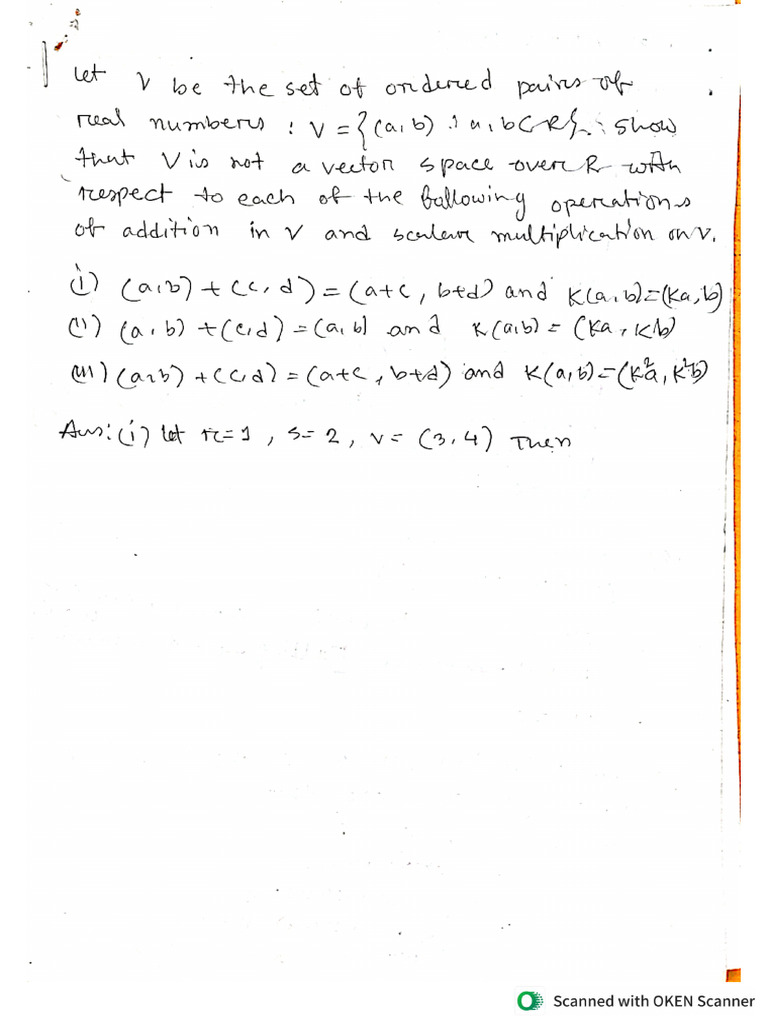 Let V be the set of ordered pairs of
real numbers : V = {(a, b) : a, b ∈ R} : Show
that V is not a vector space over R with
respect to each of the following operations
of addition in V and scalar multiplication on V.
(i) (a, b) + (c, d) = (a+c, b+d) and K(a, b) = (Ka, b)
(ii) (a, b) + (c, d) = (a, b) and K(a, b) = (Ka, Kb)
(iii) (a, b) + (c, d) = (a+c, b+d) and K(a, b) = (K²a, K²b)
Ans: (i) Let r = 1, s = 2, v = (3, 4) Then
Scanned with OKEN Scanner